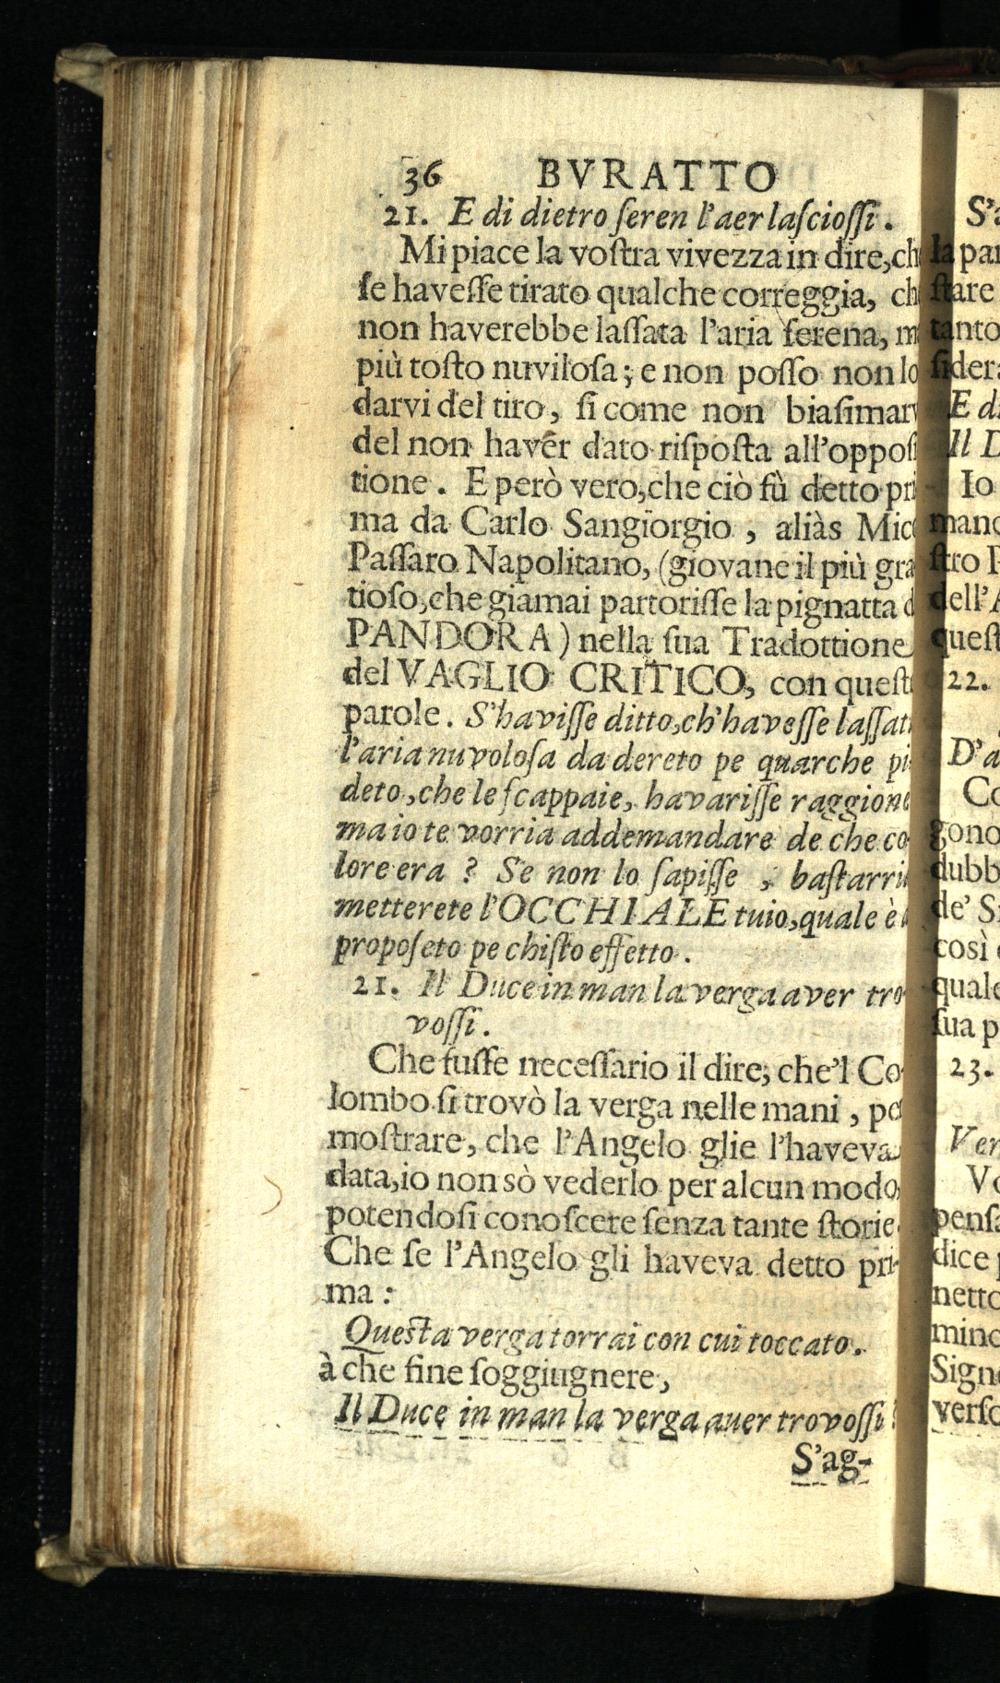 36 BVRATTO
21. E di dietro ſeren l'aer laſcioſſi.
Mi piace la voſtra vivezza in dire, ch
ſe haveſſe tirato qualche correggia, ch
non haverebbe laſſata l'aria ſerena, m
più toſto nuviloſa; e non poſſo non lo
darvi del tiro, ſi come non biaſimarv
del non havér dato riſpoſta all'oppoſi
tione. E però vero, che ciò fù detto pri
ma da Carlo Sangiorgio, aliàs Mic
Paſſaro Napolitano, (giovane il più gra
tioſo, che giamai partoriſſe la pignatta d
PANDORA) nella ſua Tradottione
del VAGLIO CRITICO, con queſt
parole. S'haviſſe ditto, ch'haveſſe laſſat
l'aria nuvoloſa da dereto pe quarche pi
deto, che le ſcappaie, havariſſe raggione
ma io te vorria addemandare de che co
lore era? Se non lo ſapiſſe, baſtarri
metterete l'OCCHIALE tuio, quale è
propoſeto pe chiſto effetto.
21. Il Duce in man la verga aver tro
voſſi.
Che fuſſe neceſſario il dire, che'l Co
lombo ſi trovò la verga nelle mani, pe
moſtrare, che l'Angelo glie l'haveva
data, io non sò vederlo per alcun modo,
potendoſi conoſcere ſenza tante ſtorie.
Che ſe l'Angelo gli haveva detto pri-
ma:
Queſta verga torrai con cui toccato.
à che fine ſoggiugnere,
Il Duce in man la verga auer trovoſſi
S'ag-
S'a
la par
ſtare
tanto
ſidera
E di
Il D
Io
mand
ſtro P
dell'A
queſt
22.
D'a
Co
gono
dubb
de' S
così
quale
ſua p
23.
Ver
Vo
penſa
dice
netto
mino
Signo
verſo